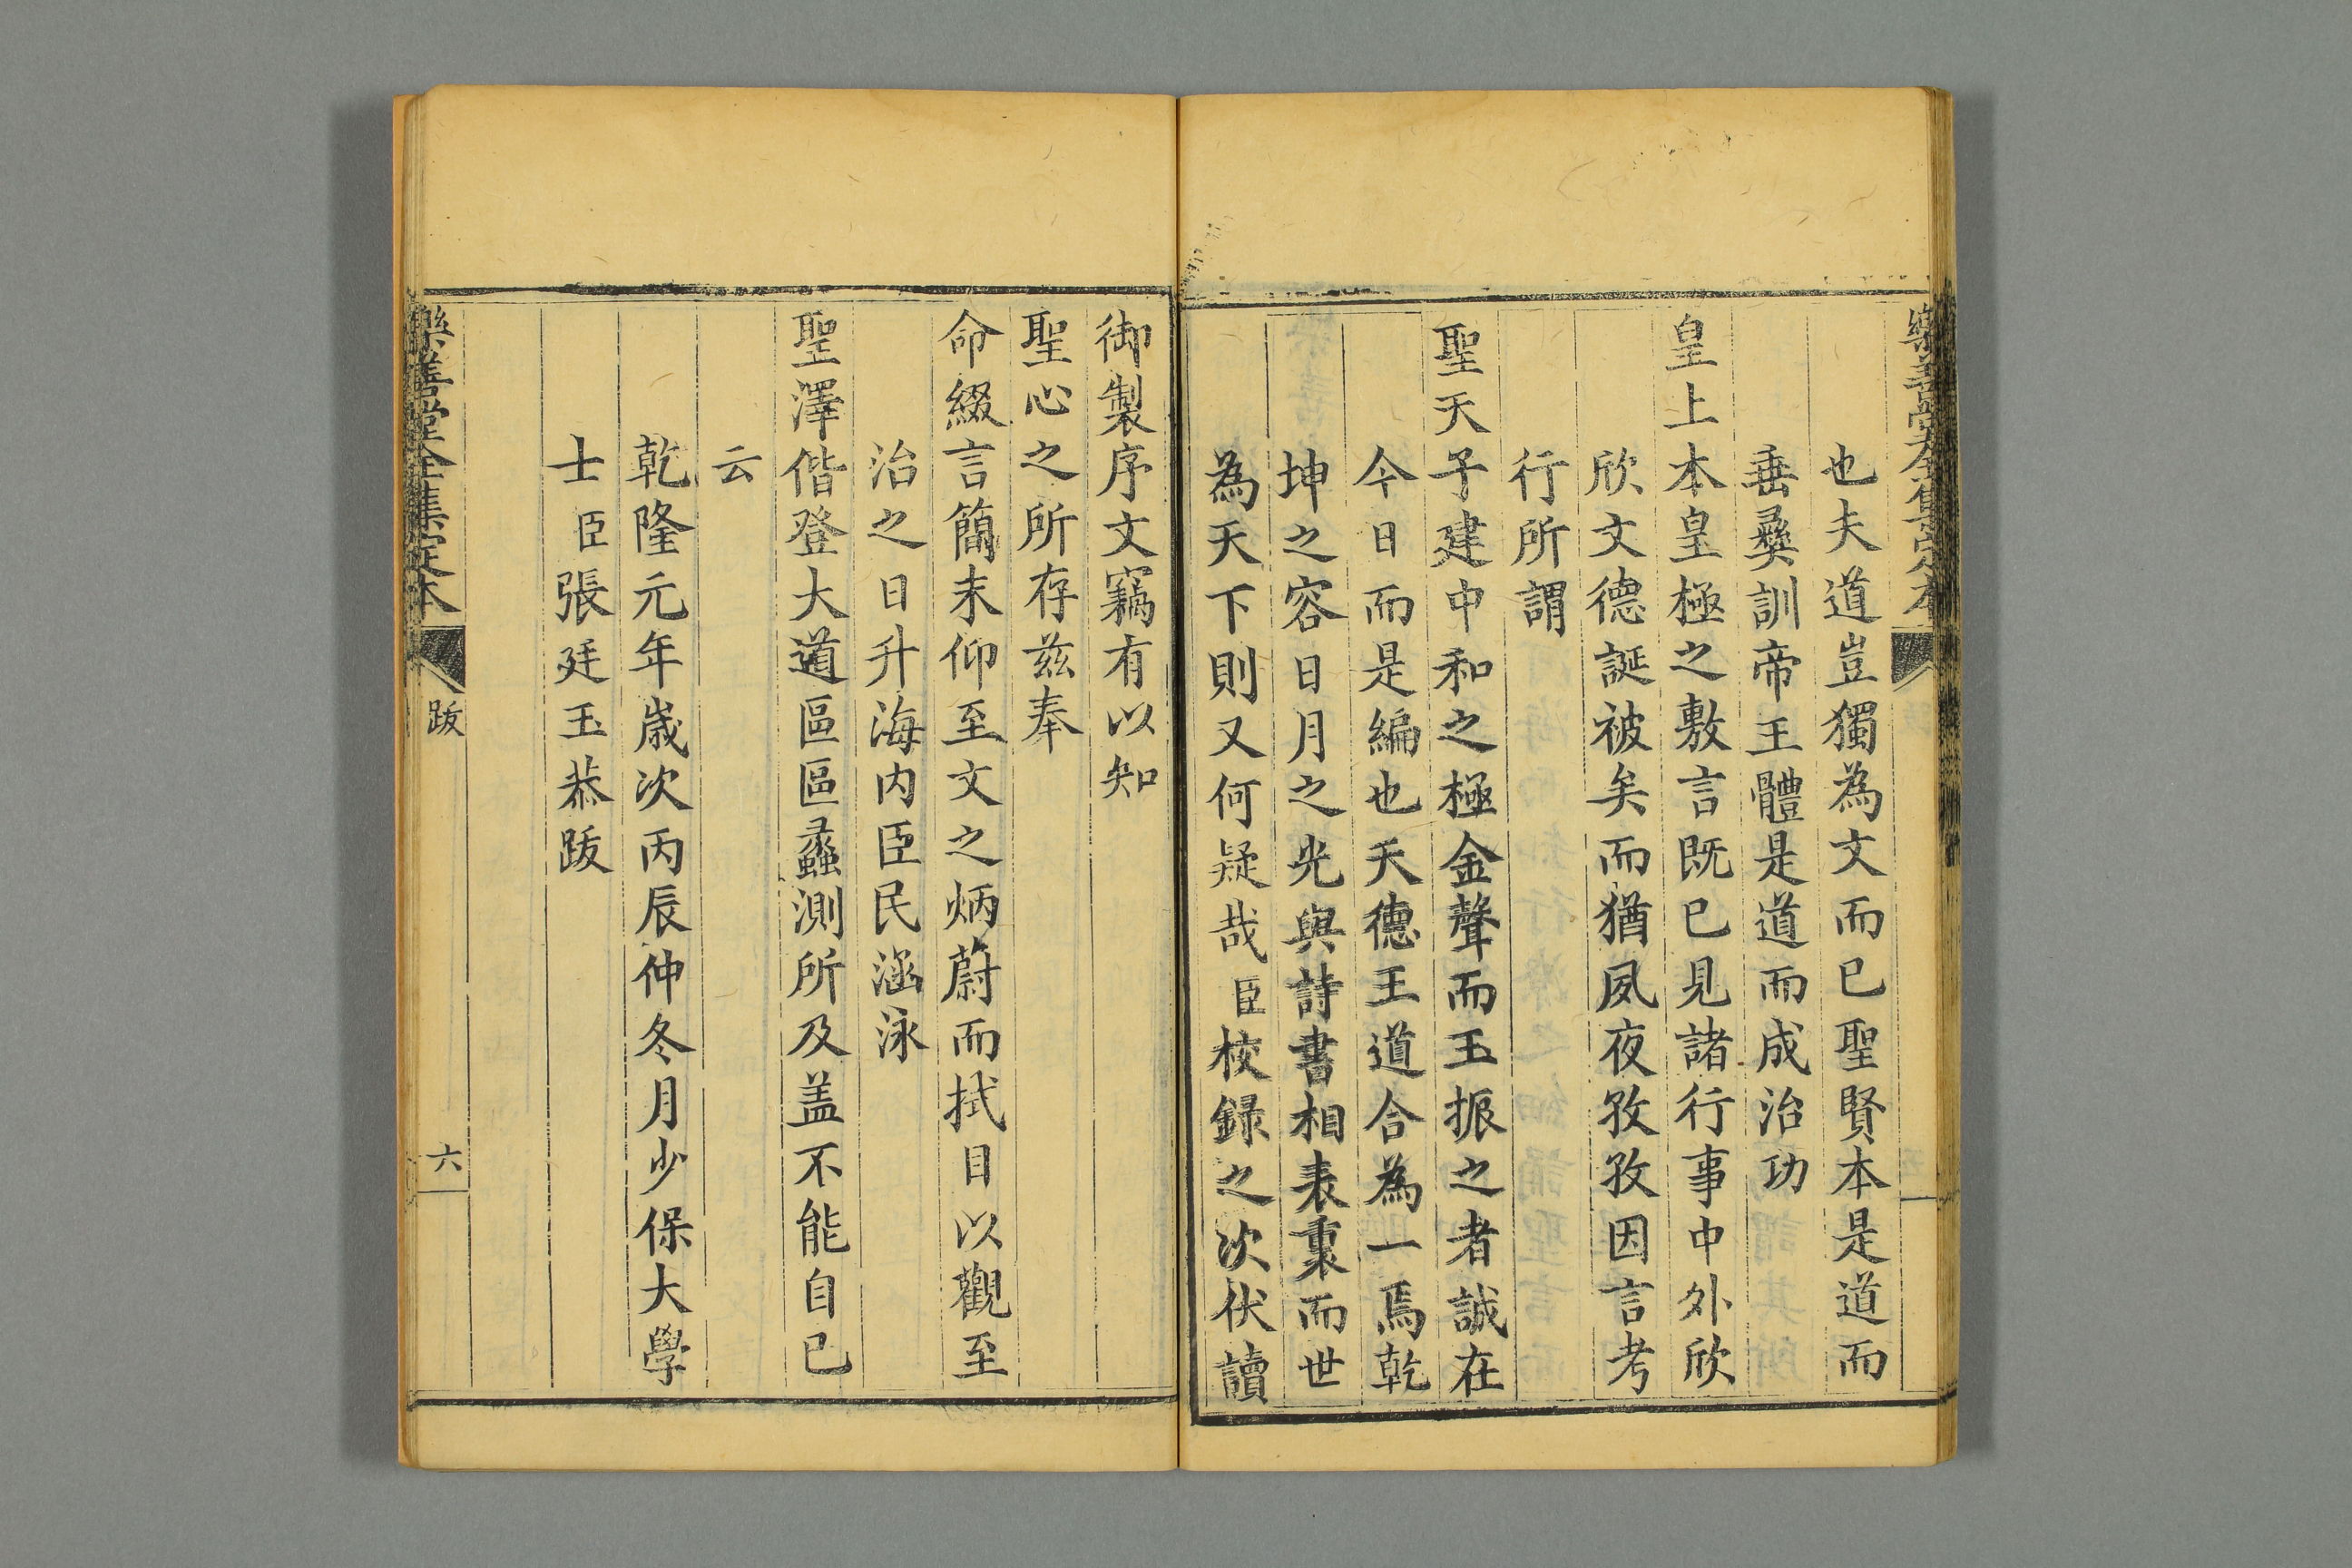 樂善堂全集定本
也夫道豈獨為文而已聖賢本是道而
垂彝訓帝王體是道而成治功
皇上本皇極之敷言既已見諸行事中外欣
欣文德誕被矣而猶夙夜孜孜因言考
行所謂
聖天子建中和之極金聲而玉振之者誠在
今日而是編也天德王道合為一焉乾
坤之容日月之光與詩書相表裏而世
為天下則又何疑哉臣校録之次伏讀
御製序文竊有以知
聖心之所存茲奉
命綴言簡末仰至文之炳蔚而拭目以觀至
治之日升海内臣民涵泳
聖澤偕登大道區區蠡測所及盖不能自已
云
乾隆元年歲次丙辰仲冬月少保大學
士臣張廷玉恭跋
樂善堂全集定本 跋 六